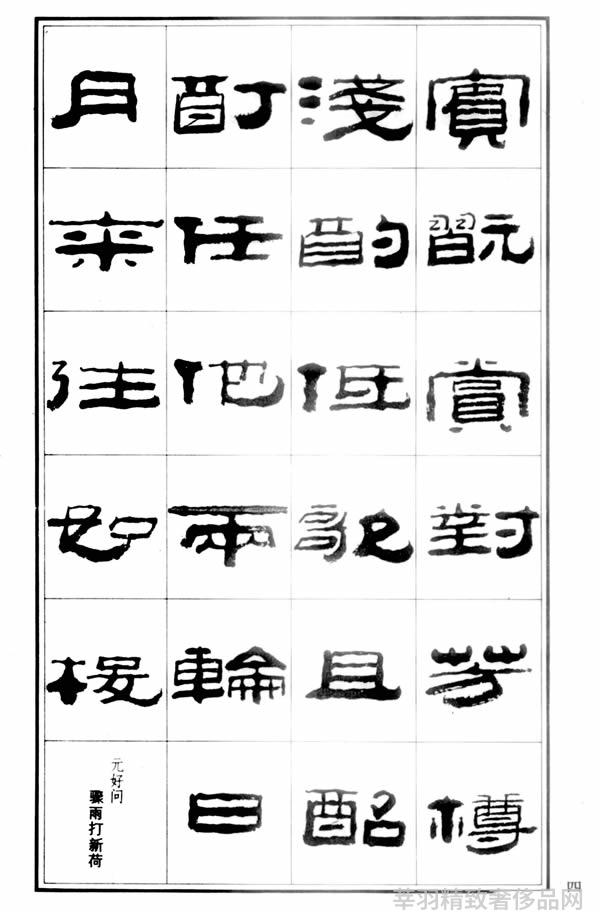 賓翫賞對芳樽
淺酌低歌且酩
酊任他兩輪日
月來往如梭
元好问
骤雨打新荷
四
莘羽精致奢侈品网